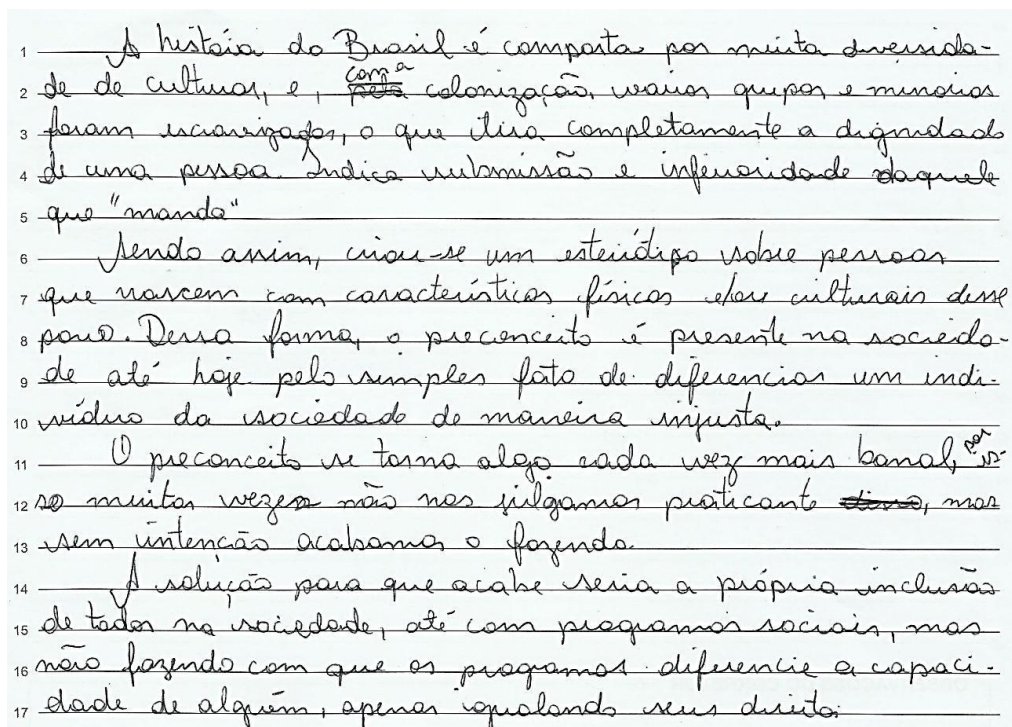 1 A história do Brasil é composta por muita diversida-
2 de de culturas, e, ~~pela~~ com a colonização, vários grupos e minorias
3 foram escravizados, o que tira completamente a dignidade
4 de uma pessoa. Indica submissão e inferioridade daquele
5 que "manda"
6 Sendo assim, criou-se um esteriótipo sobre pessoas
7 que nascem com características físicas e/ou culturais desse
8 povo. Dessa forma, o preconceito é presente na socieda-
9 de até hoje pelo simples fato de diferenciar um indi-
10 víduo da sociedade de maneira injusta.
11 O preconceito se torna algo cada vez mais banal, por is-
12 so muitas vezes não nos julgamos praticante ~~disso~~, mas
13 sem intenção acabamos o fazendo.
14 A solução para que acabe seria a própria inclusão
15 de todos na sociedade, até com programas sociais, mas
16 não fazendo com que os programas diferencie a capaci-
17 dade de alguém, apenas igualando seus direitos.